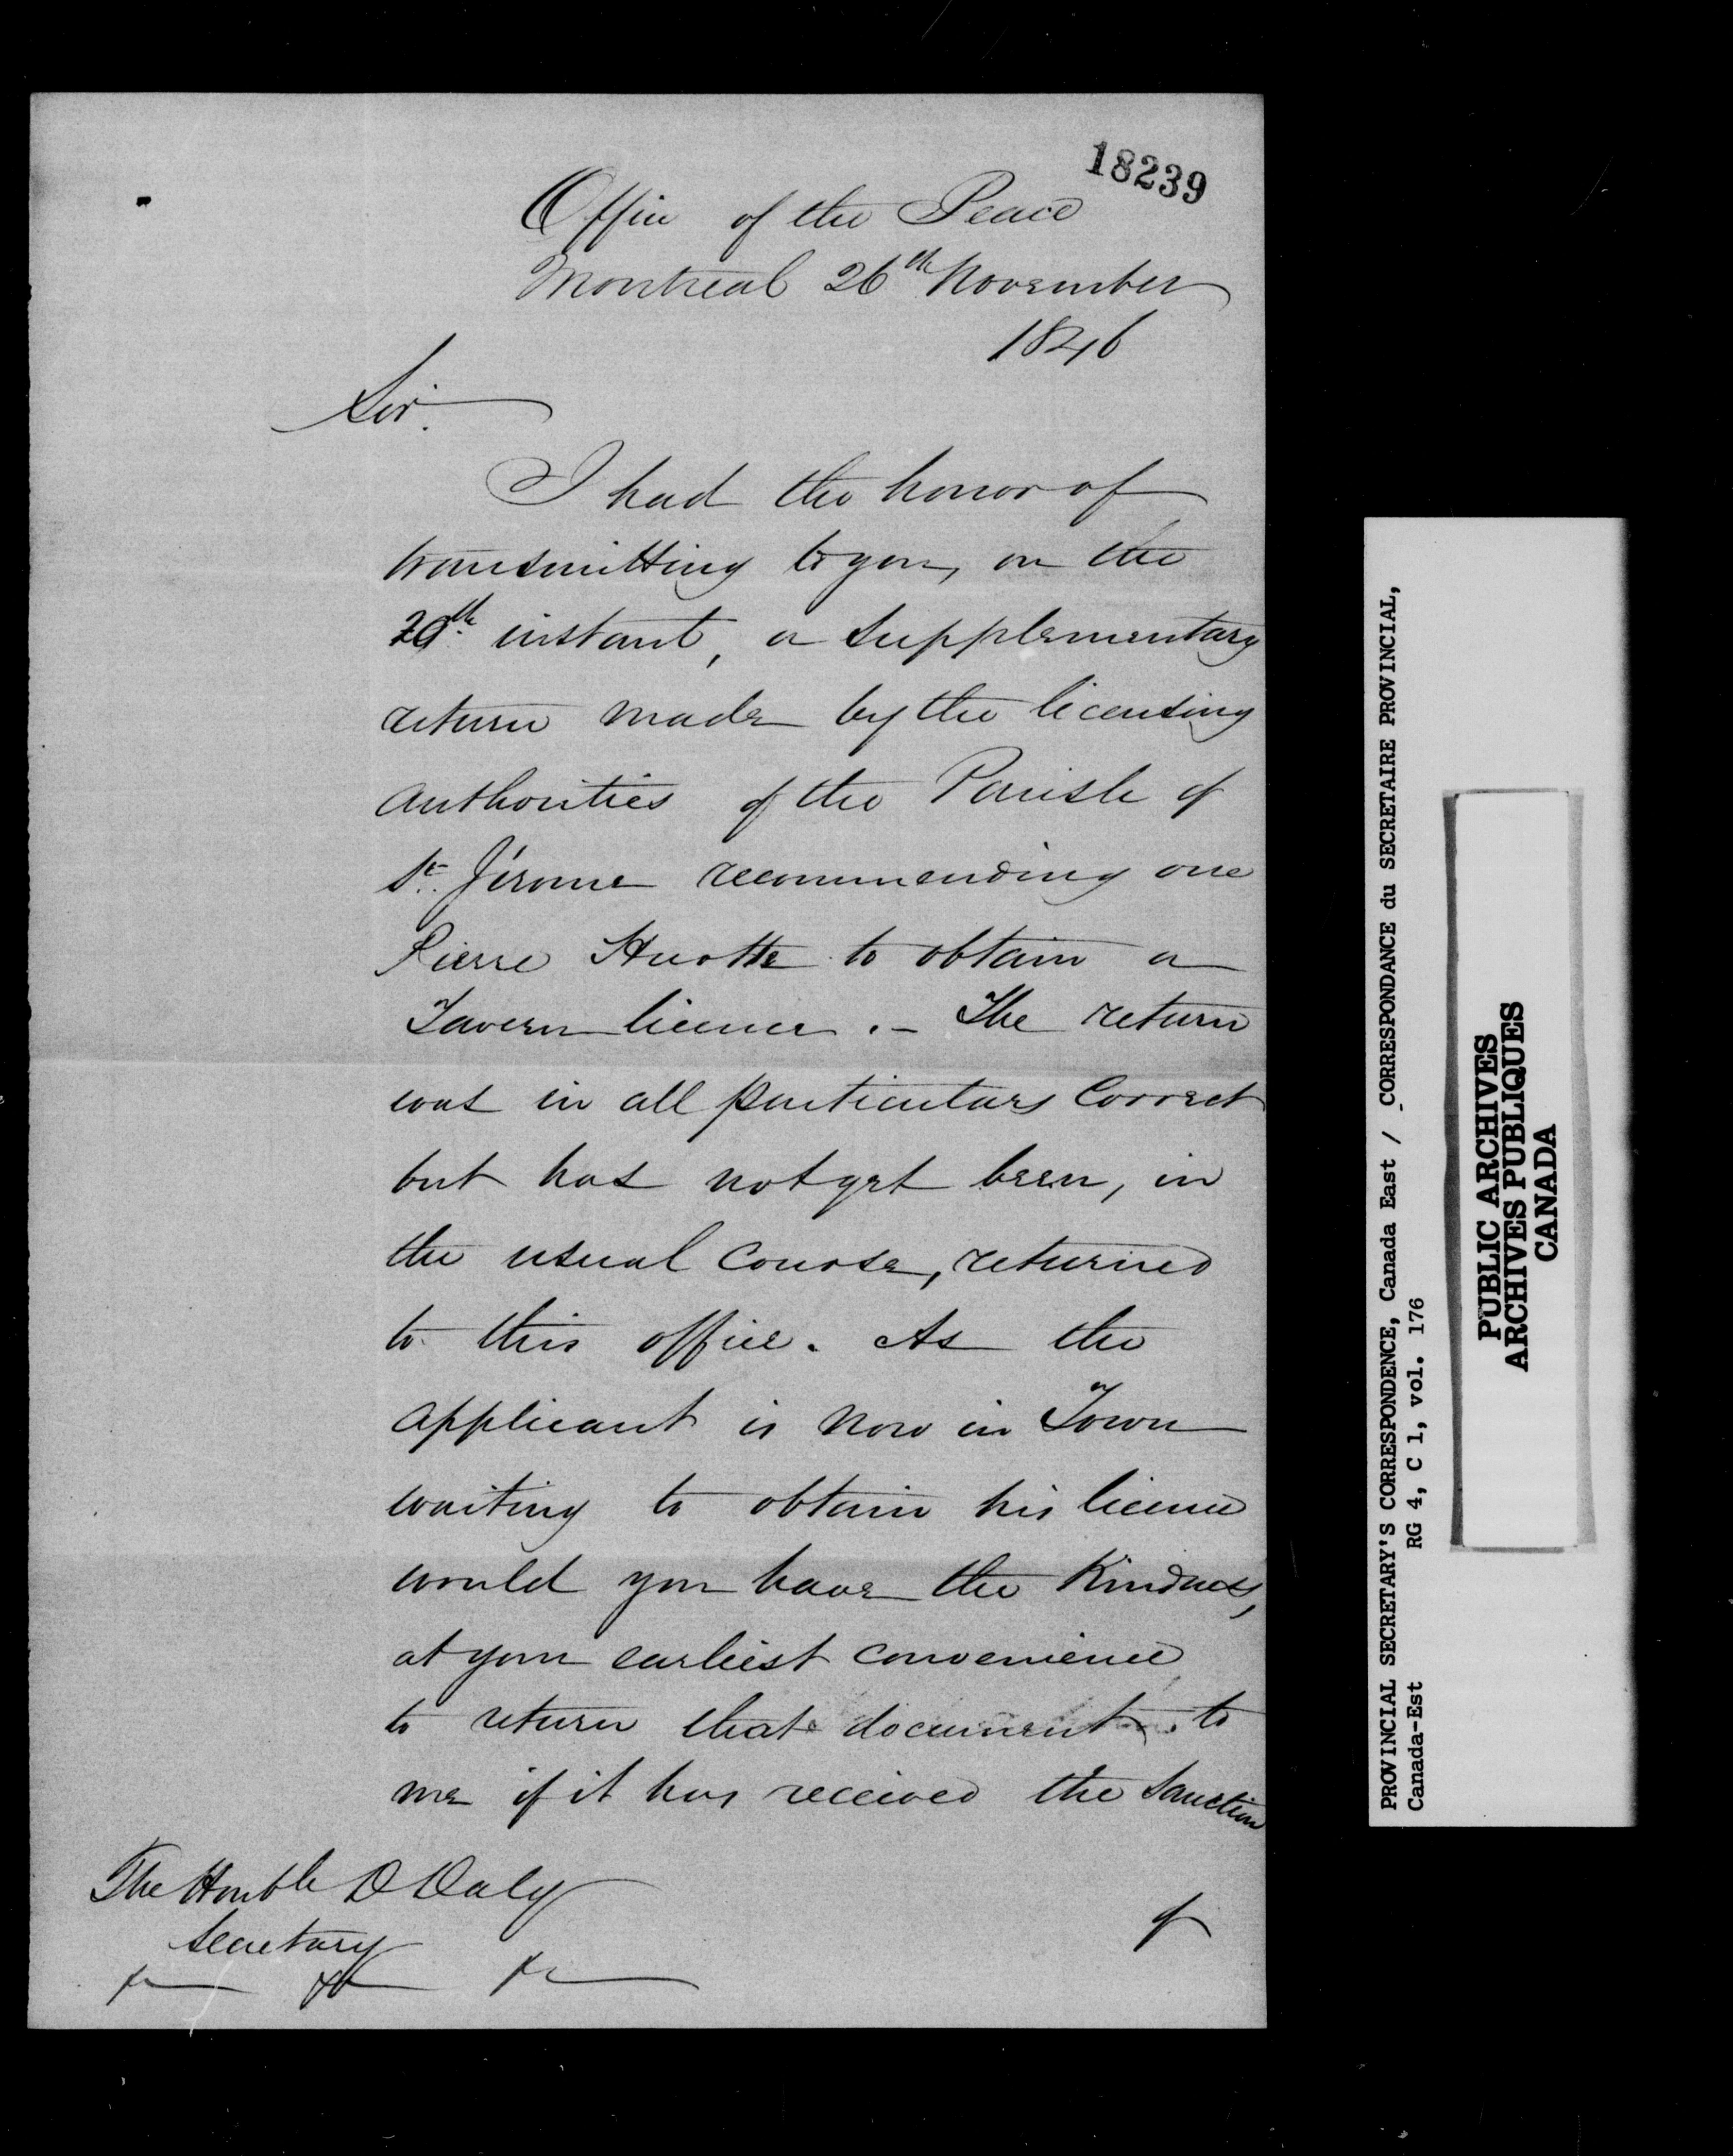 18239
Office of the Peace
Montreal 26th November
1846
Sir.
I had the honor of
transmitting to you, on the
20th instant, a supplementary
return made by the licensing
authorities of the Parish of
St. Jérome recommending one
Pierre Huotte to obtain a
Tavern licence. – The return
was in all particulars correct
but has not yet been, in
the usual course, returned
to this office. As the
applicant is now in Town
waiting to obtain his licence
would you have the kindness,
at your earliest convenience
to return that document to
me if it has received the sanction
of
The Honble D Daly
Secretary
&c &c &c
PROVINCIAL SECRETARY'S CORRESPONDENCE, Canada East / CORRESPONDANCE du SECRETAIRE PROVINCIAL,
Canada-Est RG 4, C 1, vol. 176
PUBLIC ARCHIVES
ARCHIVES PUBLIQUES
CANADA